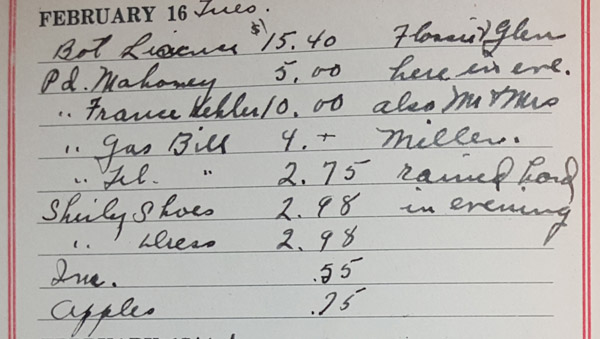 FEBRUARY 16 Tues.
Bot Lisense $15.40 Flossie & Glen
Pd. Mahoney 5.00 here in eve.
" France Kehler 10.00 also Mr & Mrs
" Gas Bill 4.+ Miller.
" Tel. " 2.75 rained hard
Shirly Shoes 2.98 in evening
" Dress 2.98
.55
apples .75